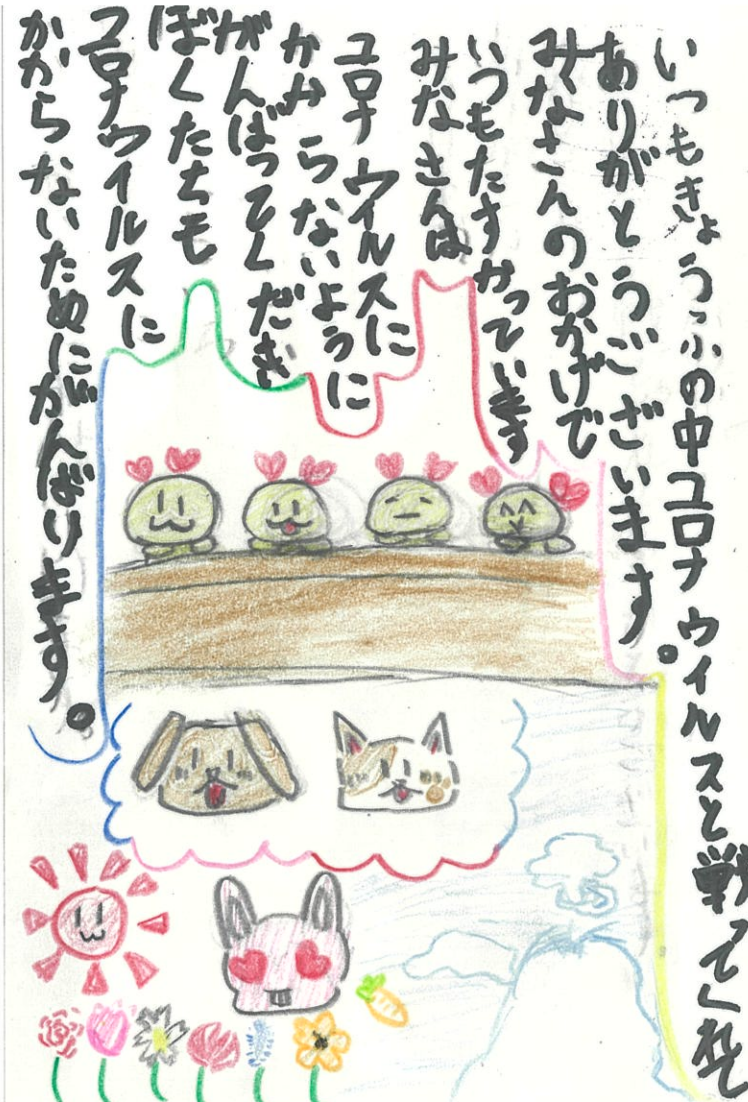 いつもきょうふの中コロナウイルスと戦ってくれて
ありがとうございます。
みなさんのおかげで
いつもたすかっています
みなさんは
コロナウイルスに
かからないように
がんばってくださ
ぼくたちも
コロナウイルスに
かからないためにがんばります。